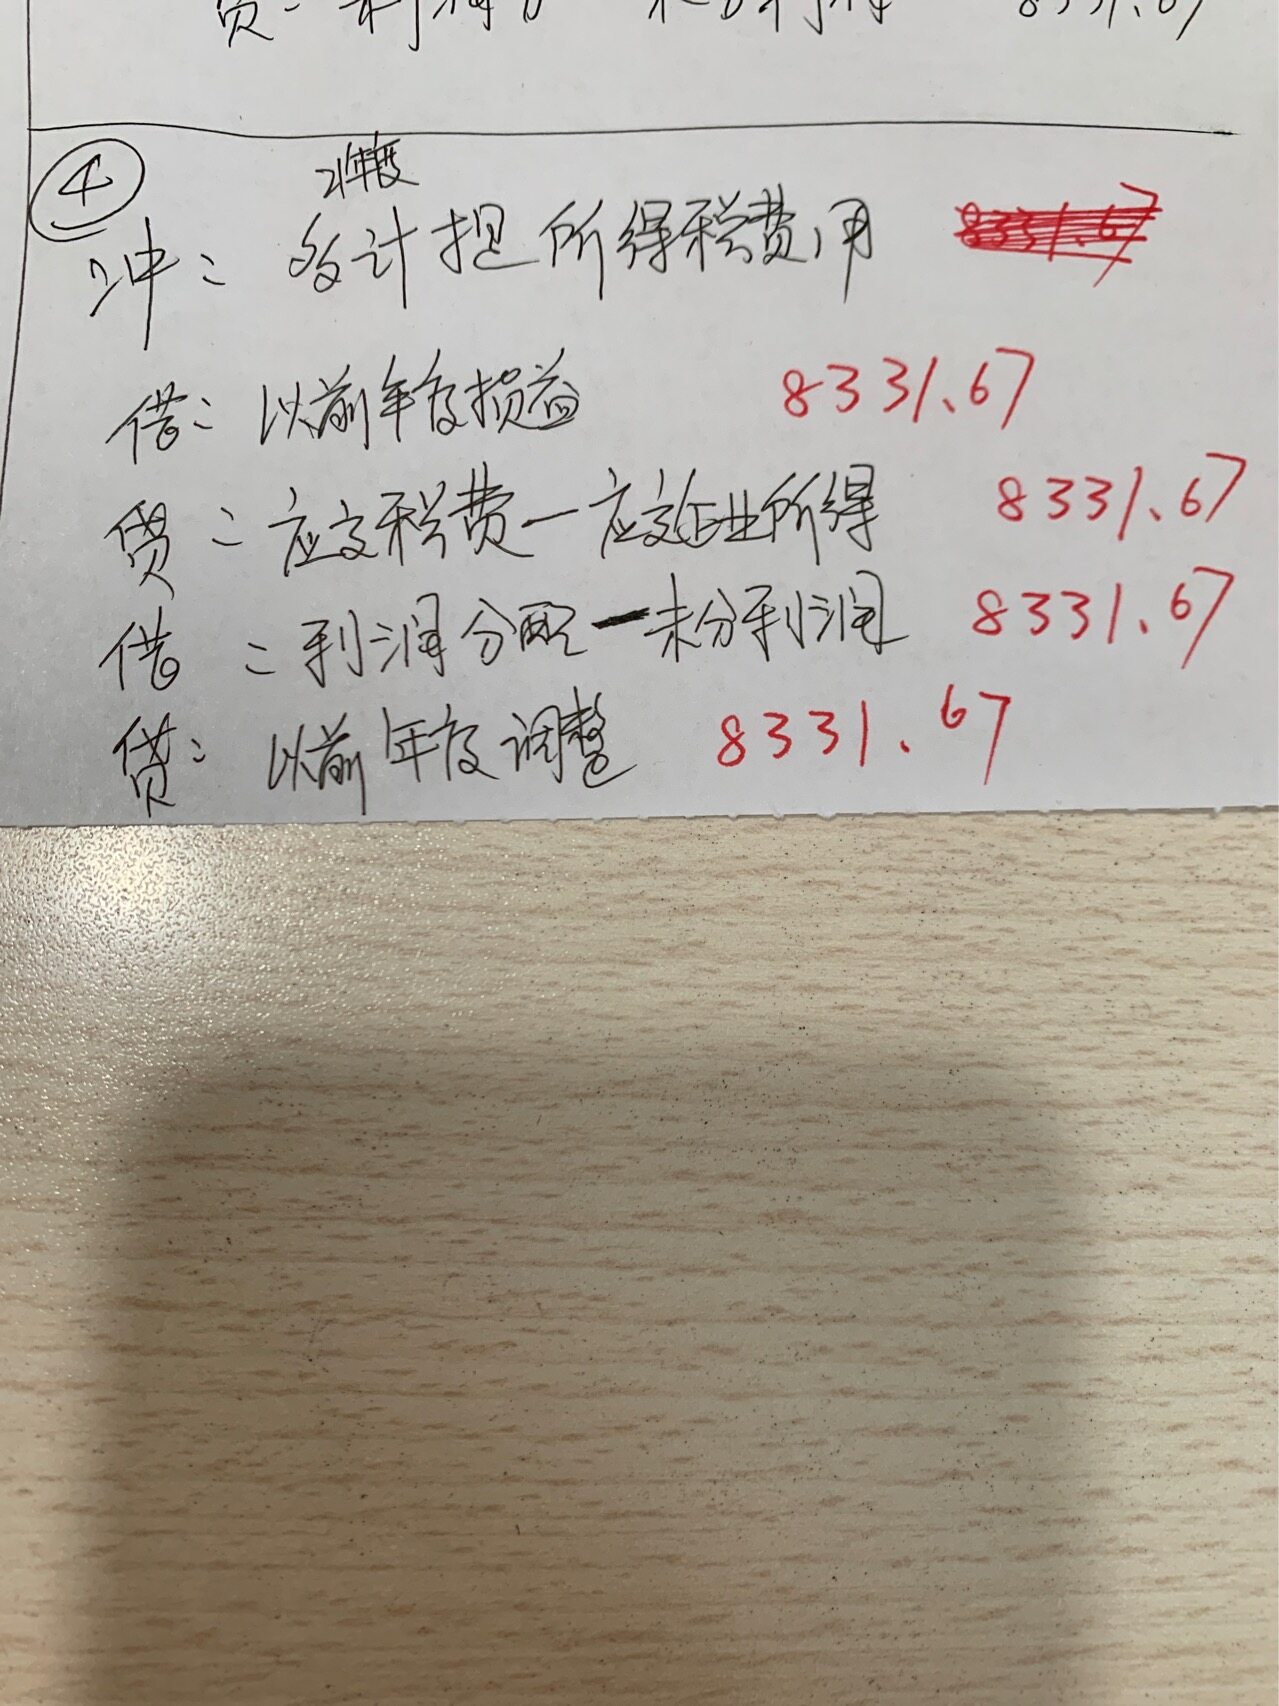 贷：利润分 未分利润 8331.67
④
21年度
冲：多计提所得税费用 8331.67
借：以前年度损益 8331.67
贷：应交税费－应交企业所得 8331.67
借：利润分配－未分利润 8331.67
贷：以前年度调整 8331.67